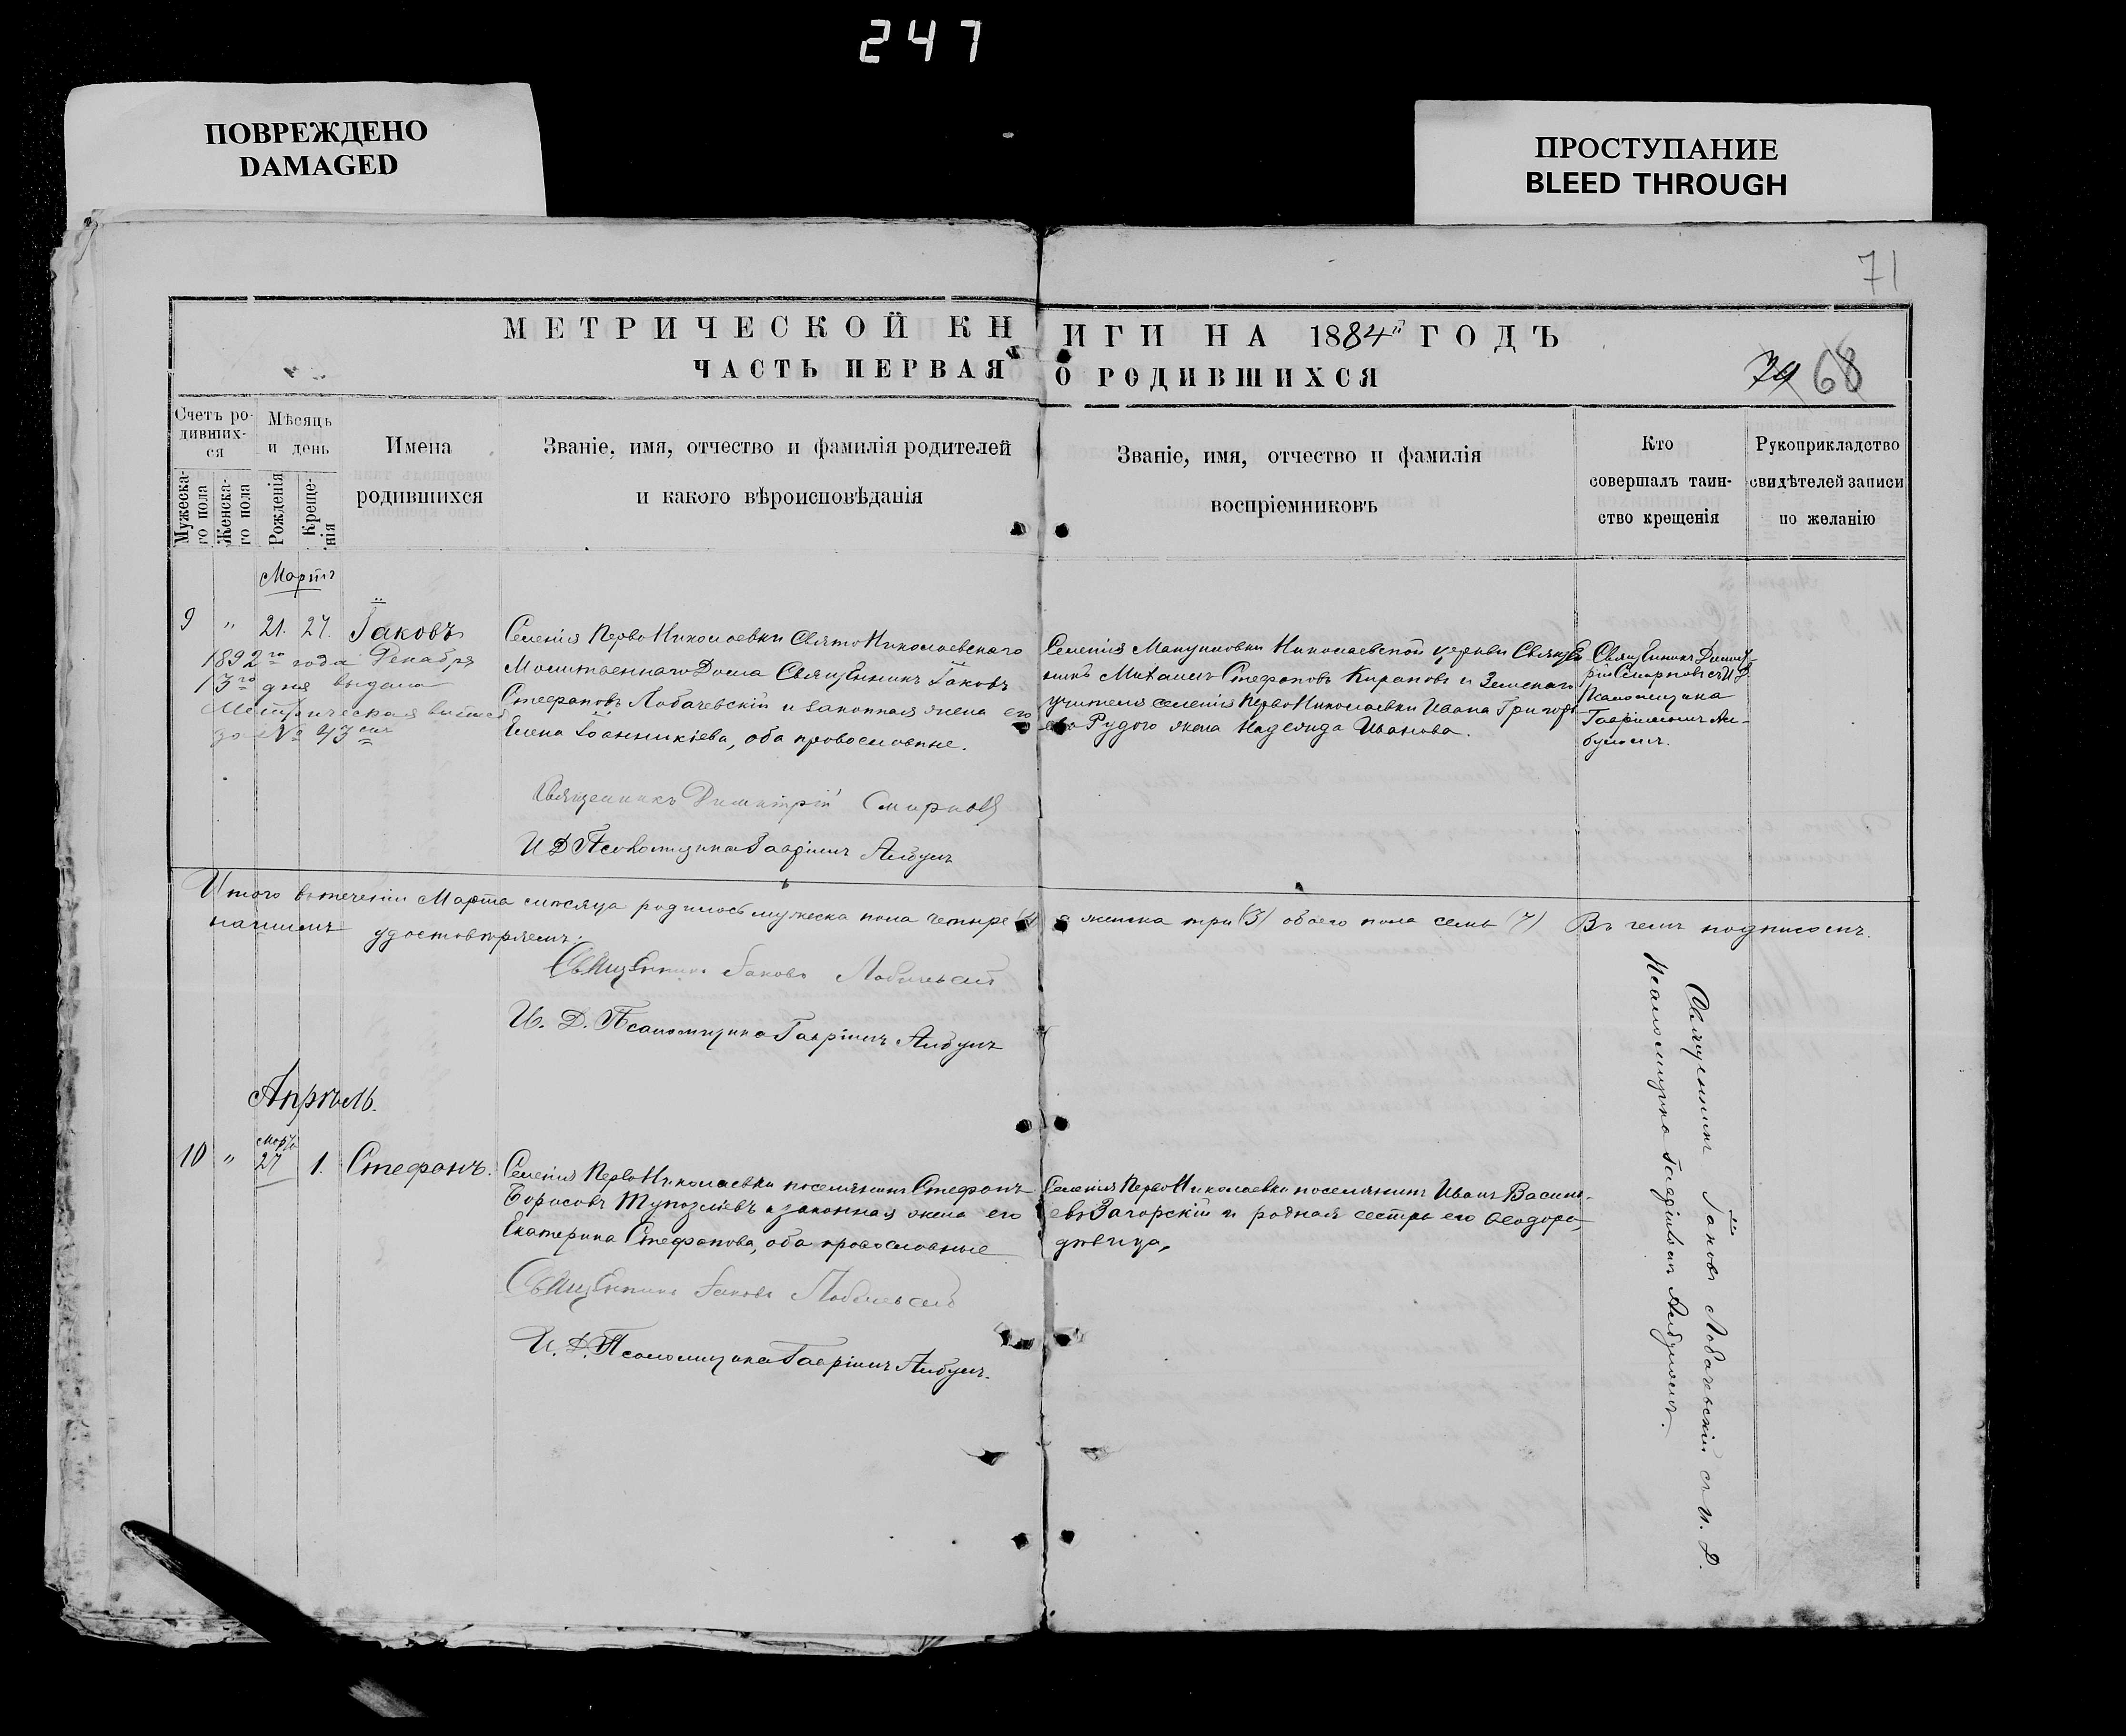 247
ПОВРЕЖДЕНО
DAMAGED
ПРОСТУПАНИЕ
BLEED THROUGH
71
МЕТРИЧЕСКОЙ КНИГИ НА 1884й ГОДЪ
ЧАСТЬ ПЕРВАЯ О РОДИВШИХСЯ
70 68
Счетъ ро-
дивших-
ся
Мужеска-
го пола
Женска-
го пола
Мѣсяцъ
и день
Рожденія
Креще-
нія
Имена
родившихся
Званіе, имя, отчество и фамилія родителей
и какого вѣроисповѣданія
Званіе, имя, отчество и фамилія
воспріемниковъ
Кто
совершалъ таин-
ство крещенія
Рукоприкладство
свидѣтелей записи
по желанію
Мартъ
9 " 21. 27. Іаковъ
1892го года Декабря
13го дня выдана
Метрическая выпись
за № 43
Селенія ПервоНиколаевки СвятоНиколаевскаго
МолитвеннагоДома Священникъ Іаковъ
Стефановъ Лобачевскій и законная жена его
Елена Іоанникіева, оба православные.
Селенія Мануиловки Николаевской церкви Священ
никъ Михаилъ Стефановъ и Земскаго
учителя селенія ПервоНиколаевки Ивана Григорь
ева Рудого жена Надежда Иванова.
Священникъ Димит-
рій Смирновъ съ И. Д.
Псаломщика
Гавріиломъ Ал-
буломъ.
Священникъ Димитрій Смирновъ
И Д Псаломщика Гавріилъ Албулъ
Итого въ теченіи Марта мѣсяца родилось мужеска пола четыре (4) женска три (3) обоего пола семь (7) Въ чемъ подписомъ
нашимъ удостовѣряемъ:
Священникъ Іаковъ Лобачевскій
И. Д. Псаломщика Гавріилъ Албулъ
Апрѣль.
10 " Марта 27 1. Стефанъ.
Селенія ПервоНиколаевки поселянинъ Стефанъ
Борисовъ и законная жена его
Екатерина Стефанова, оба православные
Селенія ПервоНиколаевки поселянинъ Иванъ Василь-
евъ Загорскій и родная сестра его Ѳеодора,
дѣвица,
Священникъ Іаковъ Лобачевскій
И. Д. Псаломщика Гавріилъ Албулъ.
Священникъ Іаковъ Лобачевскій съ И. Д.
Псаломщика Гавріиломъ Албуломъ.